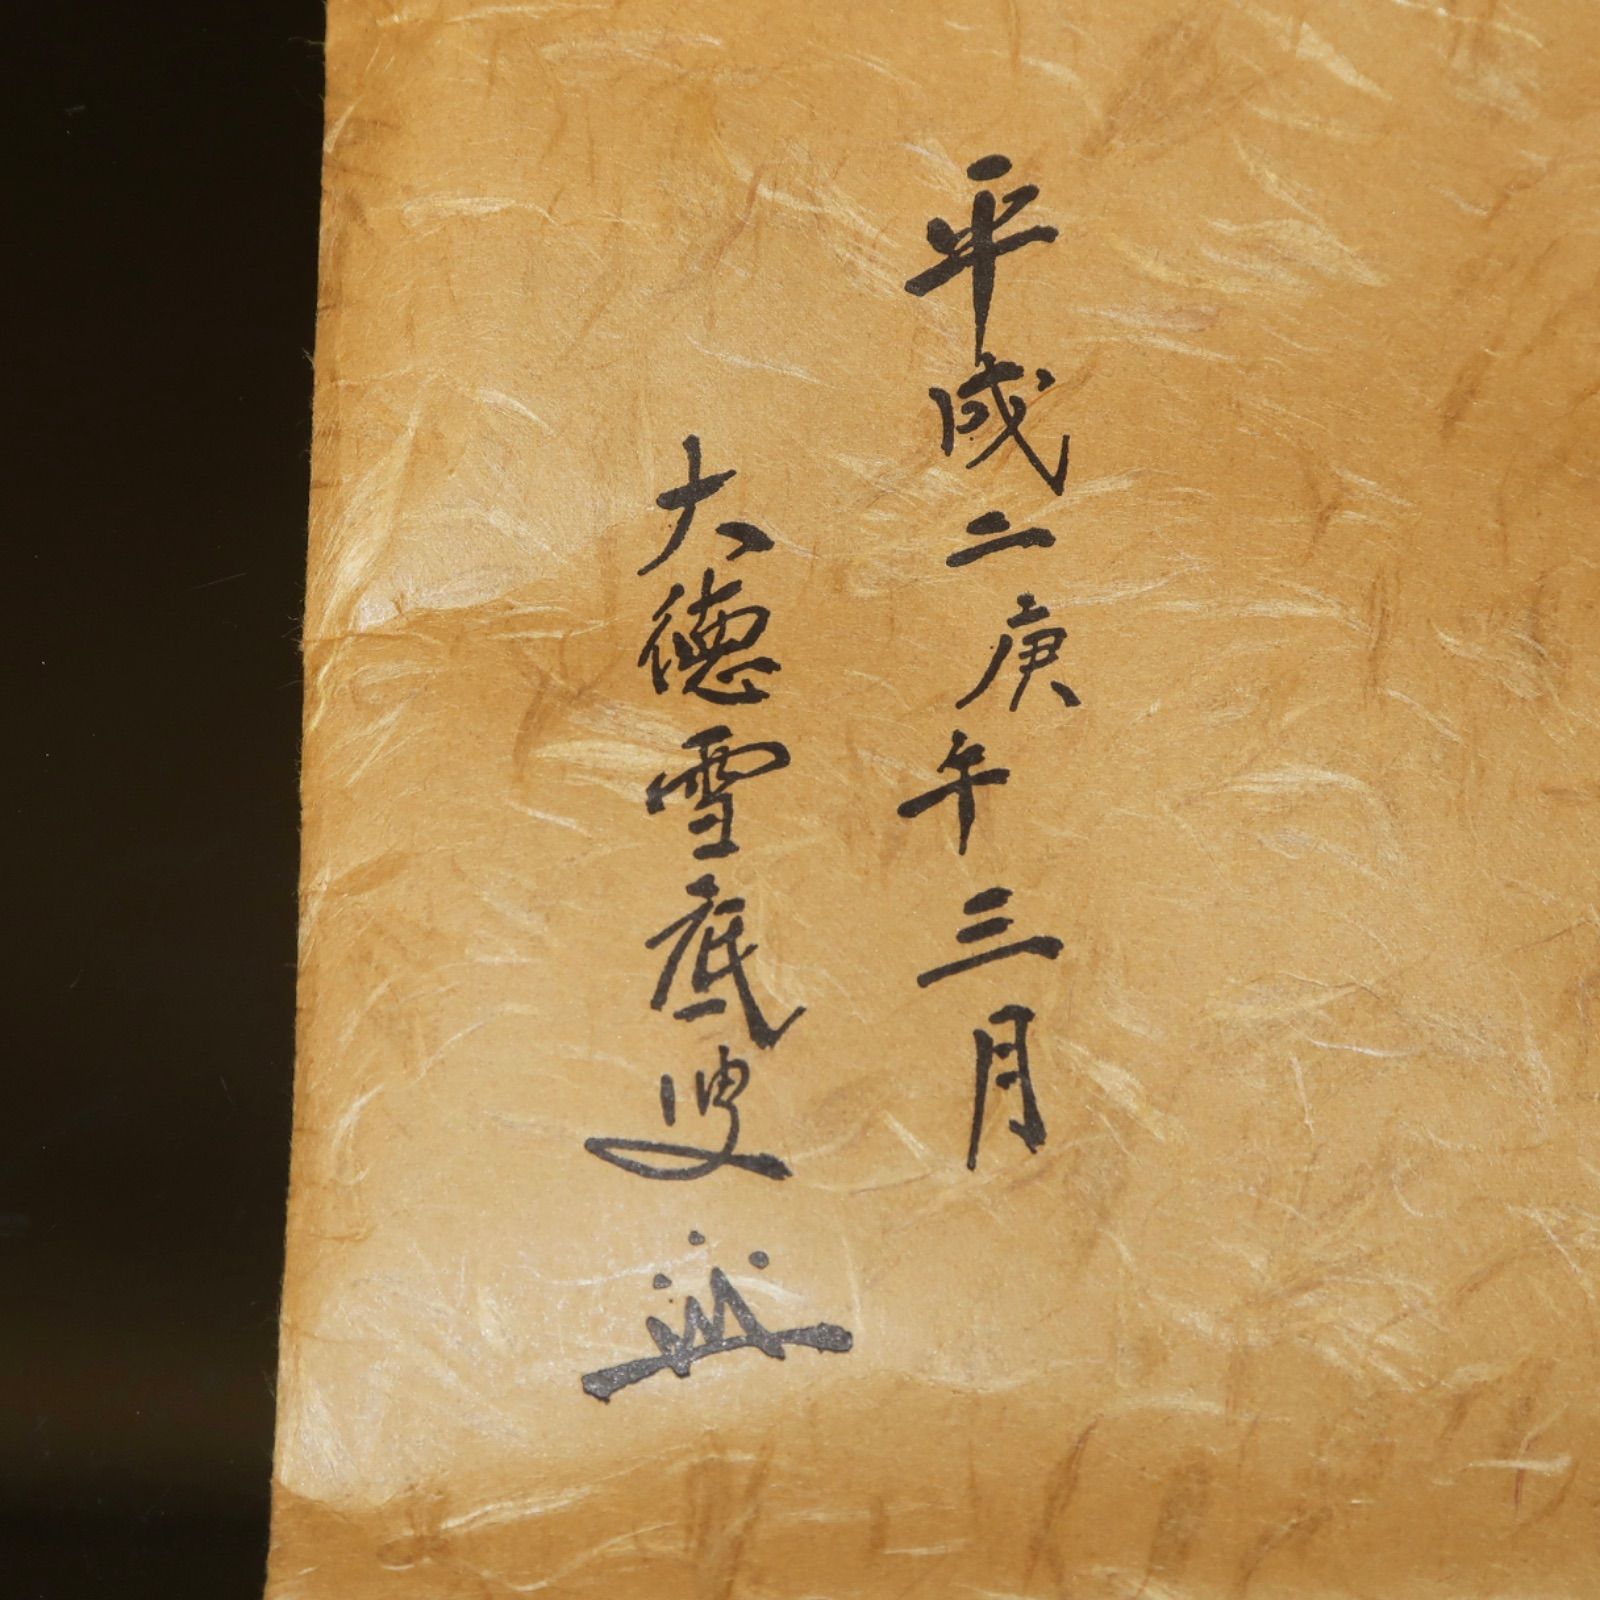 平成二庚午三月
大徳雪底叟